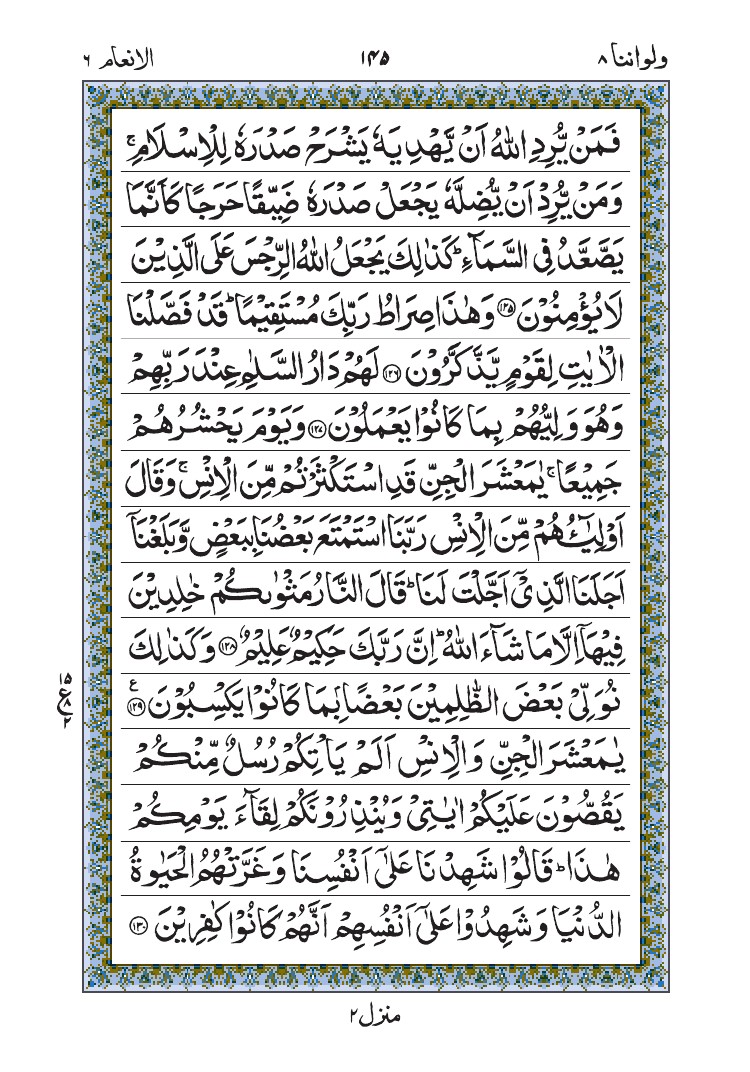 ولواننا ٨
١٤٥
الانعام ٦
فَمَنۡ يُّرِدِ اللّٰهُ اَنۡ يَّهۡدِيَهٗ يَشۡرَحۡ صَدۡرَهٗ لِلۡاِسۡلَامِ‌ۚ
وَمَنۡ يُّرِدۡ اَنۡ يُّضِلَّهٗ يَجۡعَلۡ صَدۡرَهٗ ضَيِّقًا حَرَجًا كَاَنَّمَا
يَصَّعَّدُ فِى السَّمَآءِ‌ؕ كَذٰلِكَ يَجۡعَلُ اللّٰهُ الرِّجۡسَ عَلَى الَّذِيۡنَ
لَا يُؤۡمِنُوۡنَ ﴿۱۲۵﴾ وَهٰذَا صِرَاطُ رَبِّكَ مُسۡتَقِيۡمًا‌ؕ قَدۡ فَصَّلۡنَا
الۡاٰيٰتِ لِقَوۡمٍ يَّذَّكَّرُوۡنَ ﴿۱۲۶﴾ لَهُمۡ دَارُ السَّلٰمِ عِنۡدَ رَبِّهِمۡ
وَهُوَ وَلِيُّهُمۡ بِمَا كَانُوۡا يَعۡمَلُوۡنَ ﴿۱۲۷﴾ وَيَوۡمَ يَحۡشُرُهُمۡ
جَمِيۡعًا‌ۚ يٰمَعۡشَرَ الۡجِنِّ قَدِ اسۡتَكۡثَرۡتُمۡ مِّنَ الۡاِنۡسِ‌ۚ وَقَالَ
اَوۡلِيٰٓـؤُهُمۡ مِّنَ الۡاِنۡسِ رَبَّنَا اسۡتَمۡتَعَ بَعۡضُنَا بِبَعۡضٍ وَّبَلَغۡنَاۤ
اَجَلَنَا الَّذِىۡۤ اَجَّلۡتَ لَنَا‌ؕ قَالَ النَّارُ مَثۡوٰٮكُمۡ خٰلِدِيۡنَ
فِيۡهَاۤ اِلَّا مَا شَآءَ اللّٰهُ‌ؕ اِنَّ رَبَّكَ حَكِيۡمٌ عَلِيۡمٌ ﴿۱۲۸﴾ وَكَذٰلِكَ
نُوَلِّىۡ بَعۡضَ الظّٰلِمِيۡنَ بَعۡضًاۢ بِمَا كَانُوۡا يَكۡسِبُوۡنَ ﴿۱۲۹﴾ ع
يٰمَعۡشَرَ الۡجِنِّ وَالۡاِنۡسِ اَلَمۡ يَاۡتِكُمۡ رُسُلٌ مِّنۡكُمۡ
يَقُصُّوۡنَ عَلَيۡكُمۡ اٰيٰتِىۡ وَيُنۡذِرُوۡنَكُمۡ لِقَآءَ يَوۡمِكُمۡ
هٰذَا‌ؕ قَالُوۡا شَهِدۡنَا عَلٰٓى اَنۡفُسِنَا وَغَرَّتۡهُمُ الۡحَيٰوةُ
الدُّنۡيَا وَشَهِدُوۡا عَلٰٓى اَنۡفُسِهِمۡ اَنَّهُمۡ كَانُوۡا كٰفِرِيۡنَ ﴿۱۳۰﴾
۱۵
ع ۸
۲
منزل ۲